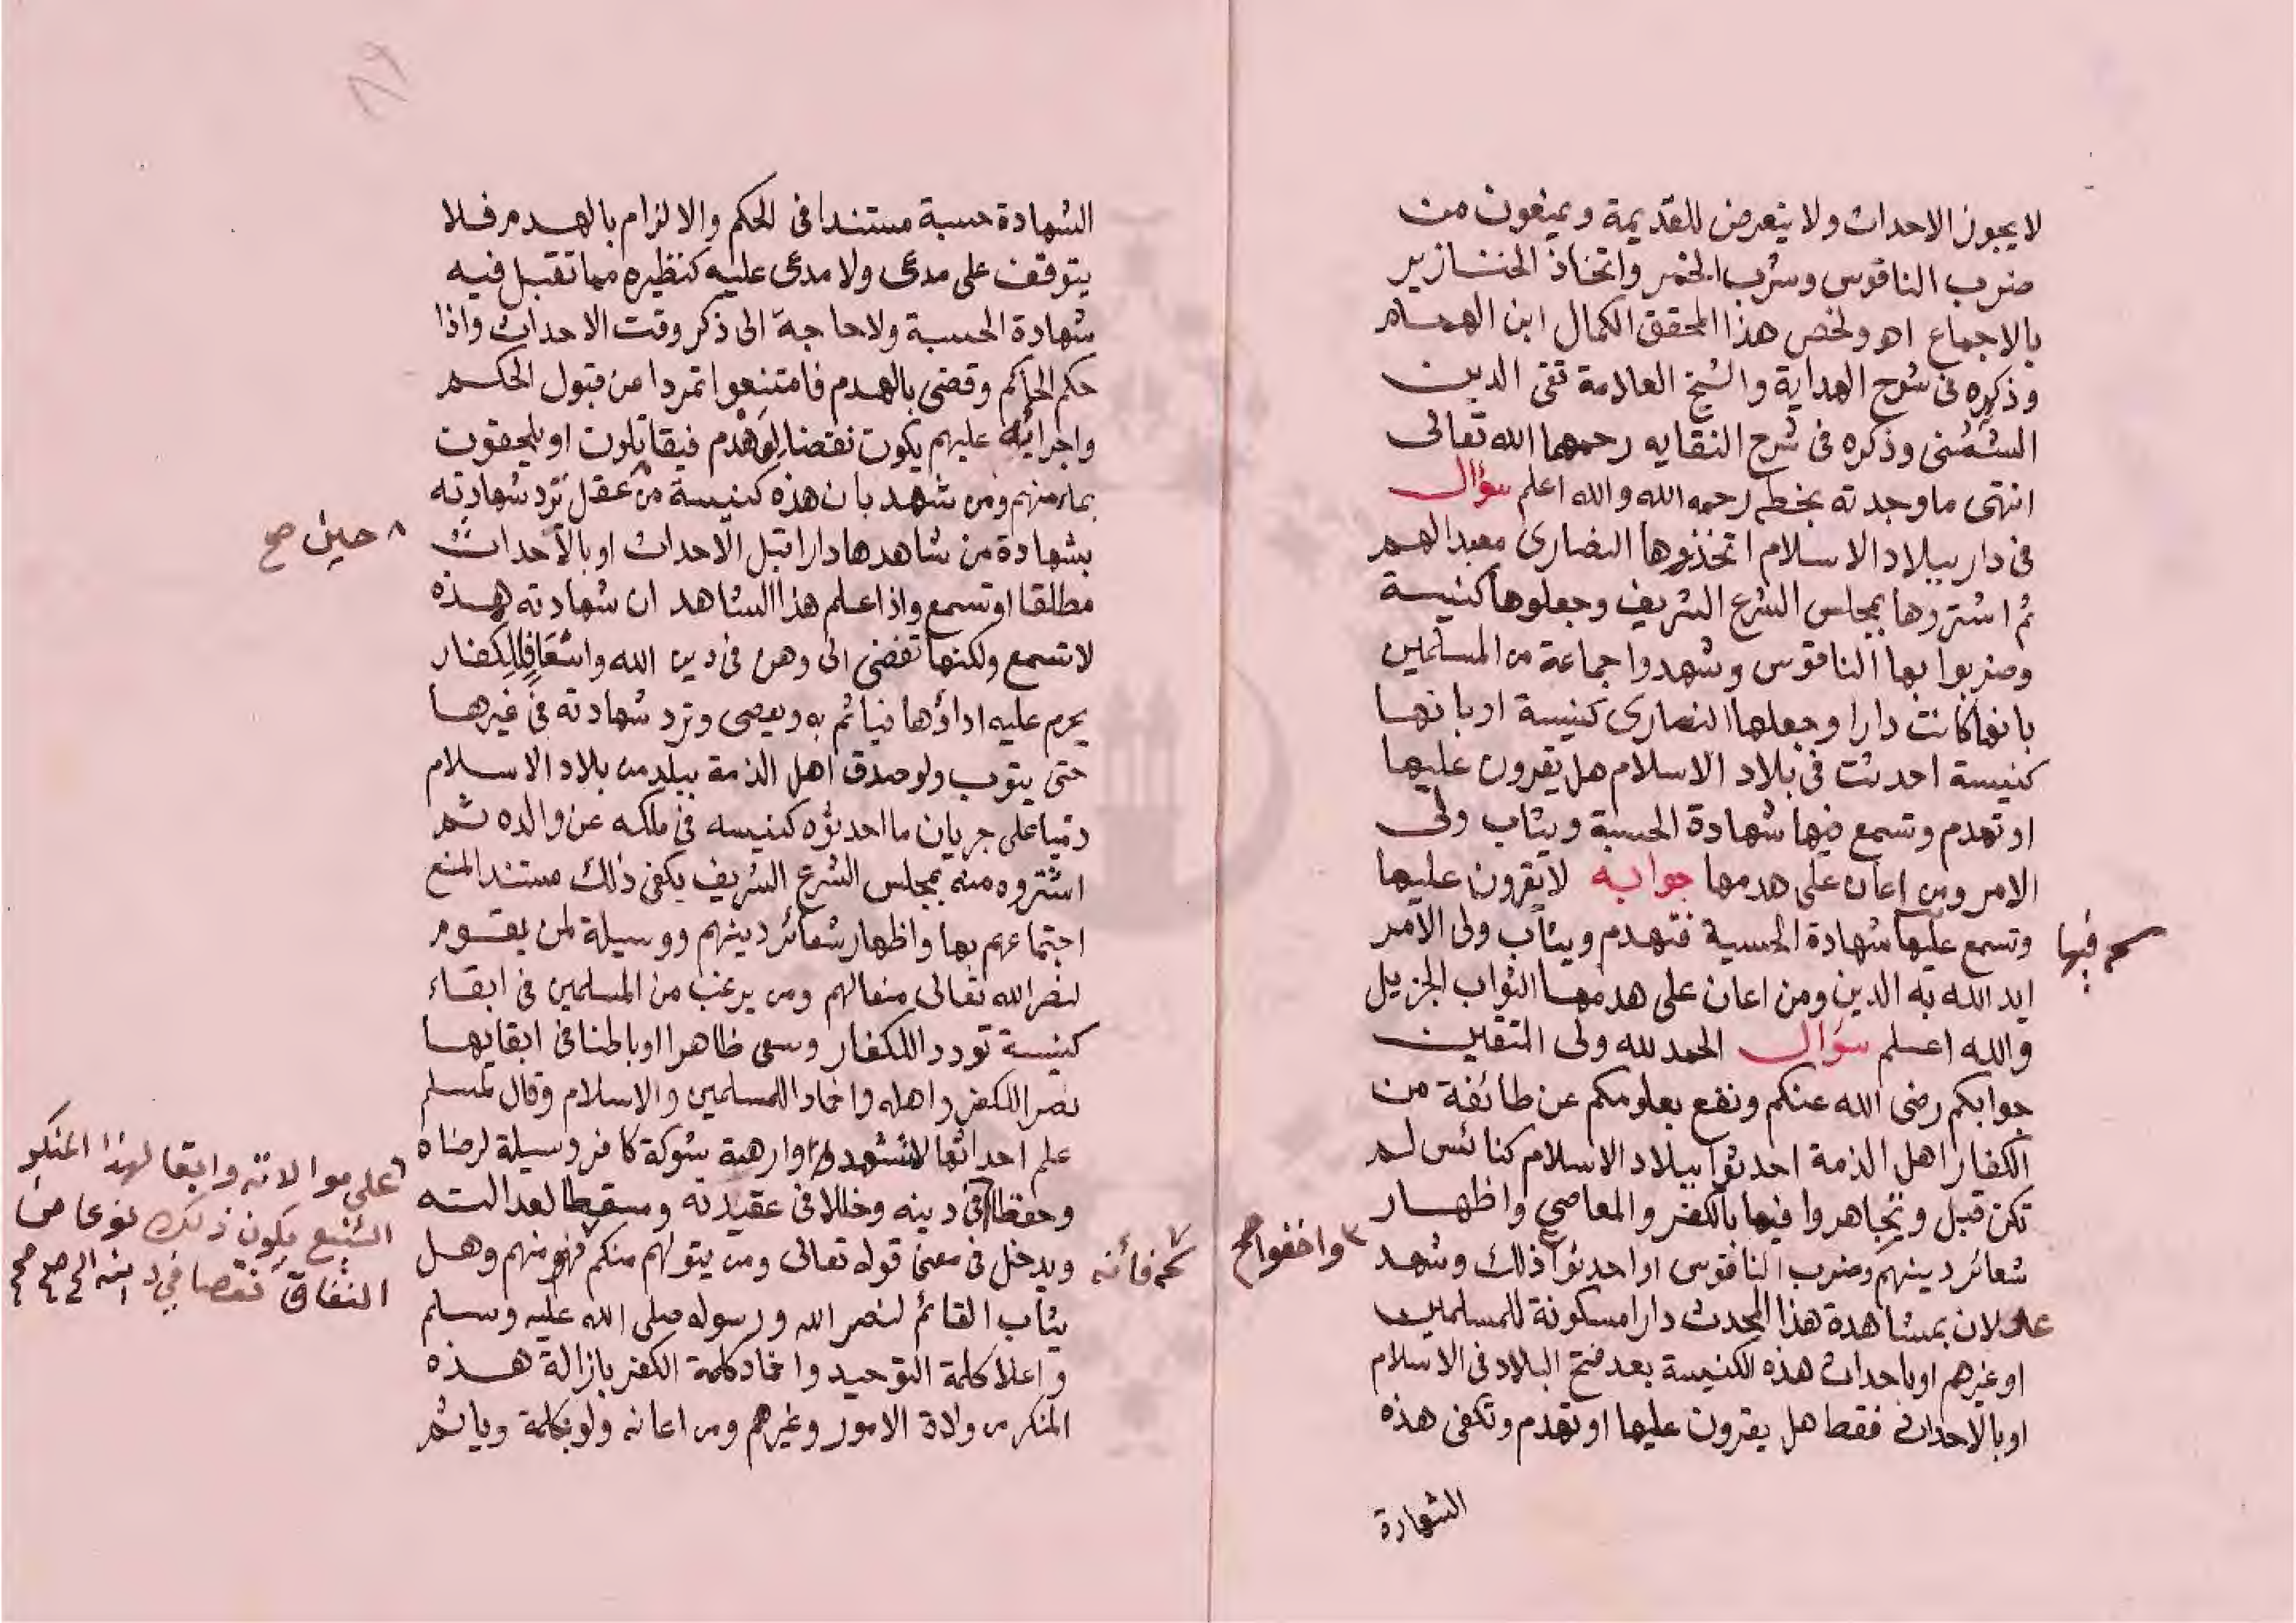 لا يجوز الاحداث ولا يتعرض للقديمة ويمنعون من
ضرب الناقوس وشرب الخمر واتخاذ الخنازير
بالاجماع اه ولخص هذا المحقق الكمال ابن الهمام
وذكره فى شرح الهداية والشيخ العلامة تقى الدين
الشمنى وذكره فى شرح النقايه رحمهما الله تعالى
انتهى ما وجدته بخطه رحمه الله والله اعلم سؤال
فى دار ببلاد الاسلام اتخذوها النصارى معبدا لهم
ثم اشتروها بمجلس الشرع الشريف وجعلوها كنيسة
وضربوا بها الناقوس وشهدوا جماعة من المسلمين
بانها كانت دارا وجعلها النصارى كنيسة او بانها
كنيسة احدثت فى بلاد الاسلام هل يقرون عليها
او تهدم وتسمع فيها شهادة الحسبة ويثاب ولى
الامر ومن اعان على هدمها جوابه لا يقرون عليها
وتسمع عليها شهادة الحسبة فتهدم ويثاب ولى الامر
فيها
ايد الله به الدين ومن اعان على هدمها الثواب الجزيل
والله اعلم سؤال الحمد لله ولى المتقين
جوابكم رضى الله عنكم ونفع بعلومكم عن طائفة من
الكفار اهل الذمة احدثوا ببلاد الاسلام كنائس لم
تكن قبل ويتجاهروا فيها بالكفر والمعاصى واظهار
شعائر دينهم وضرب الناقوس او احدثوا ذلك وشهد
واخفوا صح
عدلان بمشاهدة هذا المحدث دارا مسكونة للمسلمين
او غيرهم او باحداث هذه الكنيسة بعد فتح البلاد فى الاسلام
او بالاحداث فقط هل يقرون عليها او تهدم وتكفى هذه
الشهادة
الشهادة حسبة مستندا فى الحكم والالزام بالهدم فلا
يتوقف على مدعى ولا مدعى عليه كنظيره مما تقبل فيه
شهادة الحسبة ولا حاجة الى ذكر وقت الاحداث واذا
حكم الحاكم وقضى بالهدم فامتنعوا تمردا من قبول الحكم
واجرائه عليهم يكون نقضا فيقاتلون او يلحقون
بمأمنهم ومن شهد بان هذه كنيسة من عقل ترد شهادته
حين صح
بشهادة من شاهدها دارا قبل الاحداث او بالاحداث
مطلقا او تسمع واذا علم هذا الشاهد ان شهادته هذه
لا تسمع ولكنها تفضى الى وهن فى دين الله للكفار
يحرم عليه اداؤها فيأثم به ويعصى وترد شهادته فى غيرها
حتى يتوب ولو صدق اهل الذمة ببلد من بلاد الاسلام
على جريان ما احدثوه كنيسه فى ملكه عن والده ثم
اشتروه منه بمجلس الشرع الشريف يكفى ذلك مستندا لمنع
اجتماعهم بها واظهار شعائر دينهم ووسيلة لمن يقوم
لنصر الله تعالى منعا لهم ومن يرغب من المسلمين فى ابقاء
كنيسة توددا للكفار وسعى ظاهرا او باطنا فى ابقايها
نصرا للكفر واهله واخمادا للمسلمين والاسلام وقال لمسلم
علم احداثها لا تشهد او ارهبه بشوكة كافر وسيلة لرضاه
على موالاته وابقا لهذا المنكر
الشنيع يكون ذلك نوعا من
النفاق نقصا فى دينه الخ صح
وحفظا فى دينه وخللا فى عقيدته ومسقطا لعدالته
ويدخل فى معنى قوله تعالى ومن يتولهم منكم فهو منهم وهل
فأنه
يثاب القائم لنصر الله ورسوله صلى الله عليه وسلم
واعلا كلمة التوحيد واخماد كلمة الكفر بازالة هذه
المنكر من ولاة الامور وغيرهم ومن اعانه ولو بكلمة ويأثم